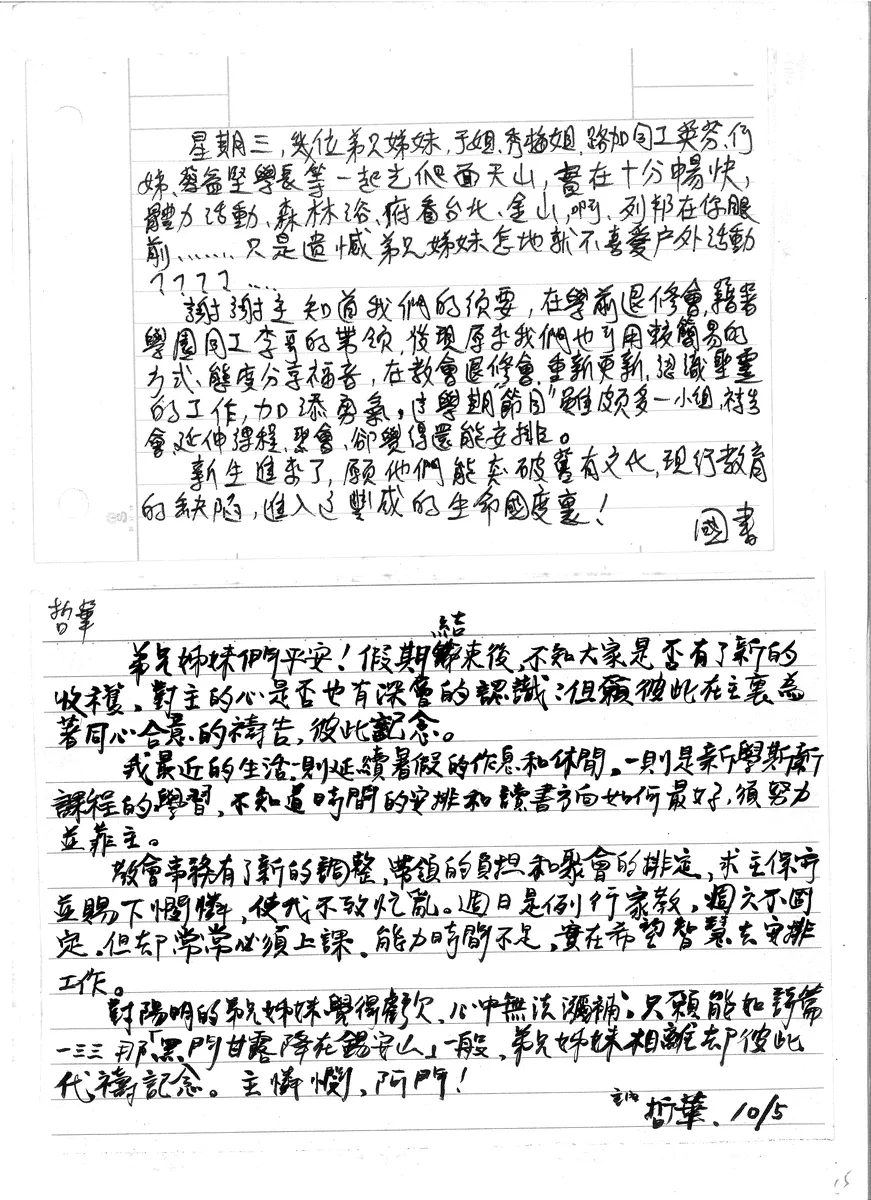 星期三,幾位弟兄姊妹,于姐、秀梅姐、路加同工英芬、仔
姊、蔡益堅學長等一起去爬面天山,實在十分暢快,
體力活動、森林浴、府看台北、金山,啊、列邦在你眼
前……只是遺憾弟兄姊妹怎地就不喜愛户外活動
????……
謝謝主知道我們的須要,在學前退修會,藉著
學園同工李哥的帶領,發現原來我們也可用較簡易的
方式、態度分享福音,在教會退修會,重新更新,認識聖靈
的工作,加添勇氣。這學期“節目”雖頗多-小組,禱告
會,延伸課程、聚會、卻覺得還能安排。
新生進來了,願他們能突破舊有文化,現行教育
的缺陷,進入這豐盛的生命國度裏!
國書
哲華
結
弟兄姊妹們平安!假期束後,不知大家是否有了新的
收穫,對主的心是否也有深層的認識;但願彼此在主裏為
著同心合意的禱告,彼此記念。
我最近的生活一則延續暑假的作息和休閒,一則是新學期新
課程的學習,不知道時間的安排和讀書方向如何最好,須努力
並靠主。
教會事務有了新的調整,帶領的負担和聚會的排定,求主保守
並賜下憐憫,使我不致忙亂。週日是例行家教,週六不固
定,但却常常必須上課,能力時間不足,實在希望智慧去安排
工作。
對陽明的弟兄姊妹覺得虧欠,心中無法彌補;只願能如詩篇
一三三那「黑門甘露降在錫安山」一般,弟兄姊妹相離却彼此
代禱記念。主憐憫,阿門!
主內 哲華. 10/5
15